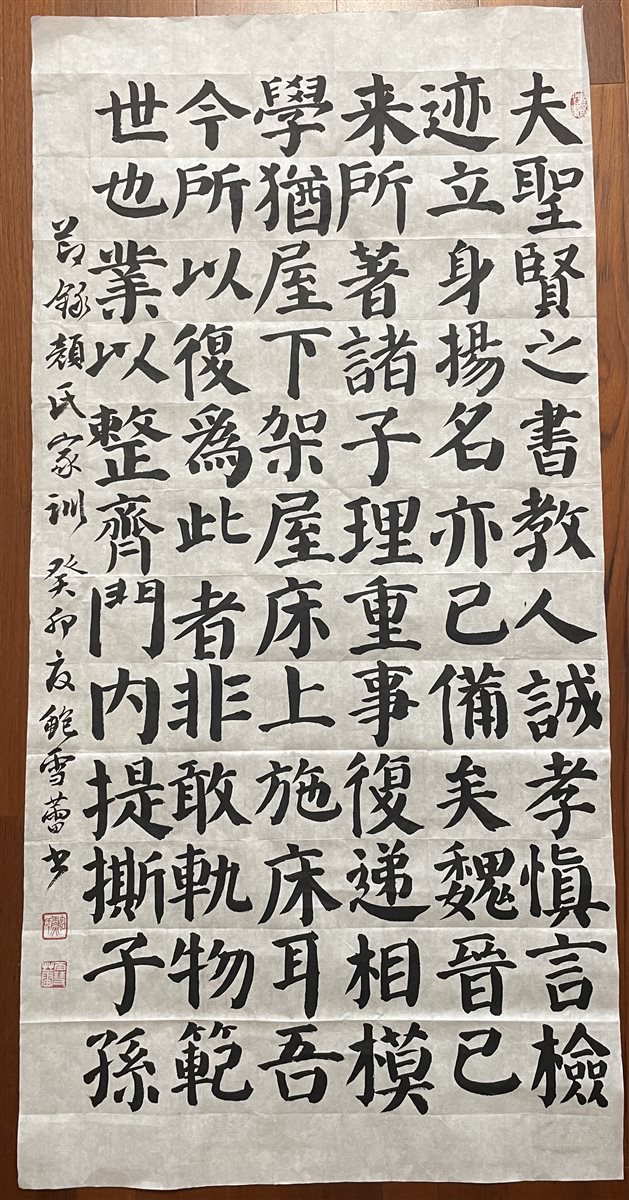 夫聖賢之書教人誠孝慎言檢
迹立身揚名亦已備矣魏晉已
来所著諸子理重事復递相模
學猶屋下架屋床上施床耳吾
今所以復為此者非敢軌物範
世也業以整齊門内提撕子孫
节録顔氏家訓癸卯夏鲍雪蕾书